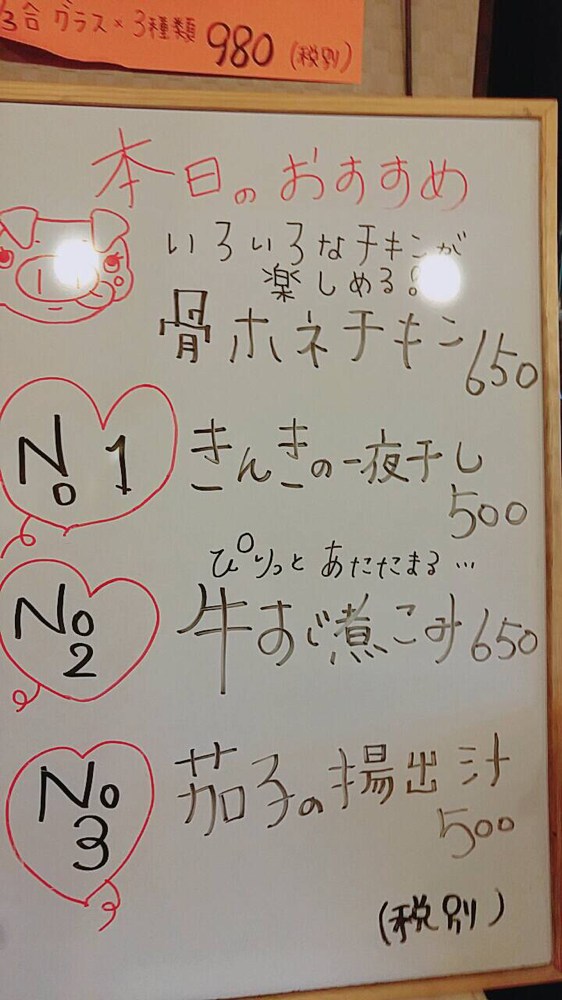 ⅓合 グラス×3種類 980 (税別)
本日のおすすめ
いろいろなチキンが
楽しめる!
骨ホネチキン 650
No 1 きんきの一夜干し
500
ぴりっと あたたまる…
No 2 牛すじ煮こみ 650
No 3 茄子の揚出汁
500
(税別)